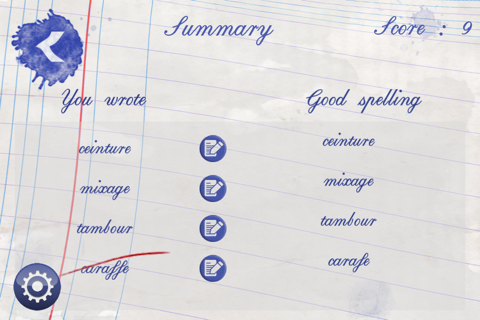 Summary Score : 9
You wrote Good spelling
ceinture ceinture
mixage mixage
tambour tambour
caraffe carafe